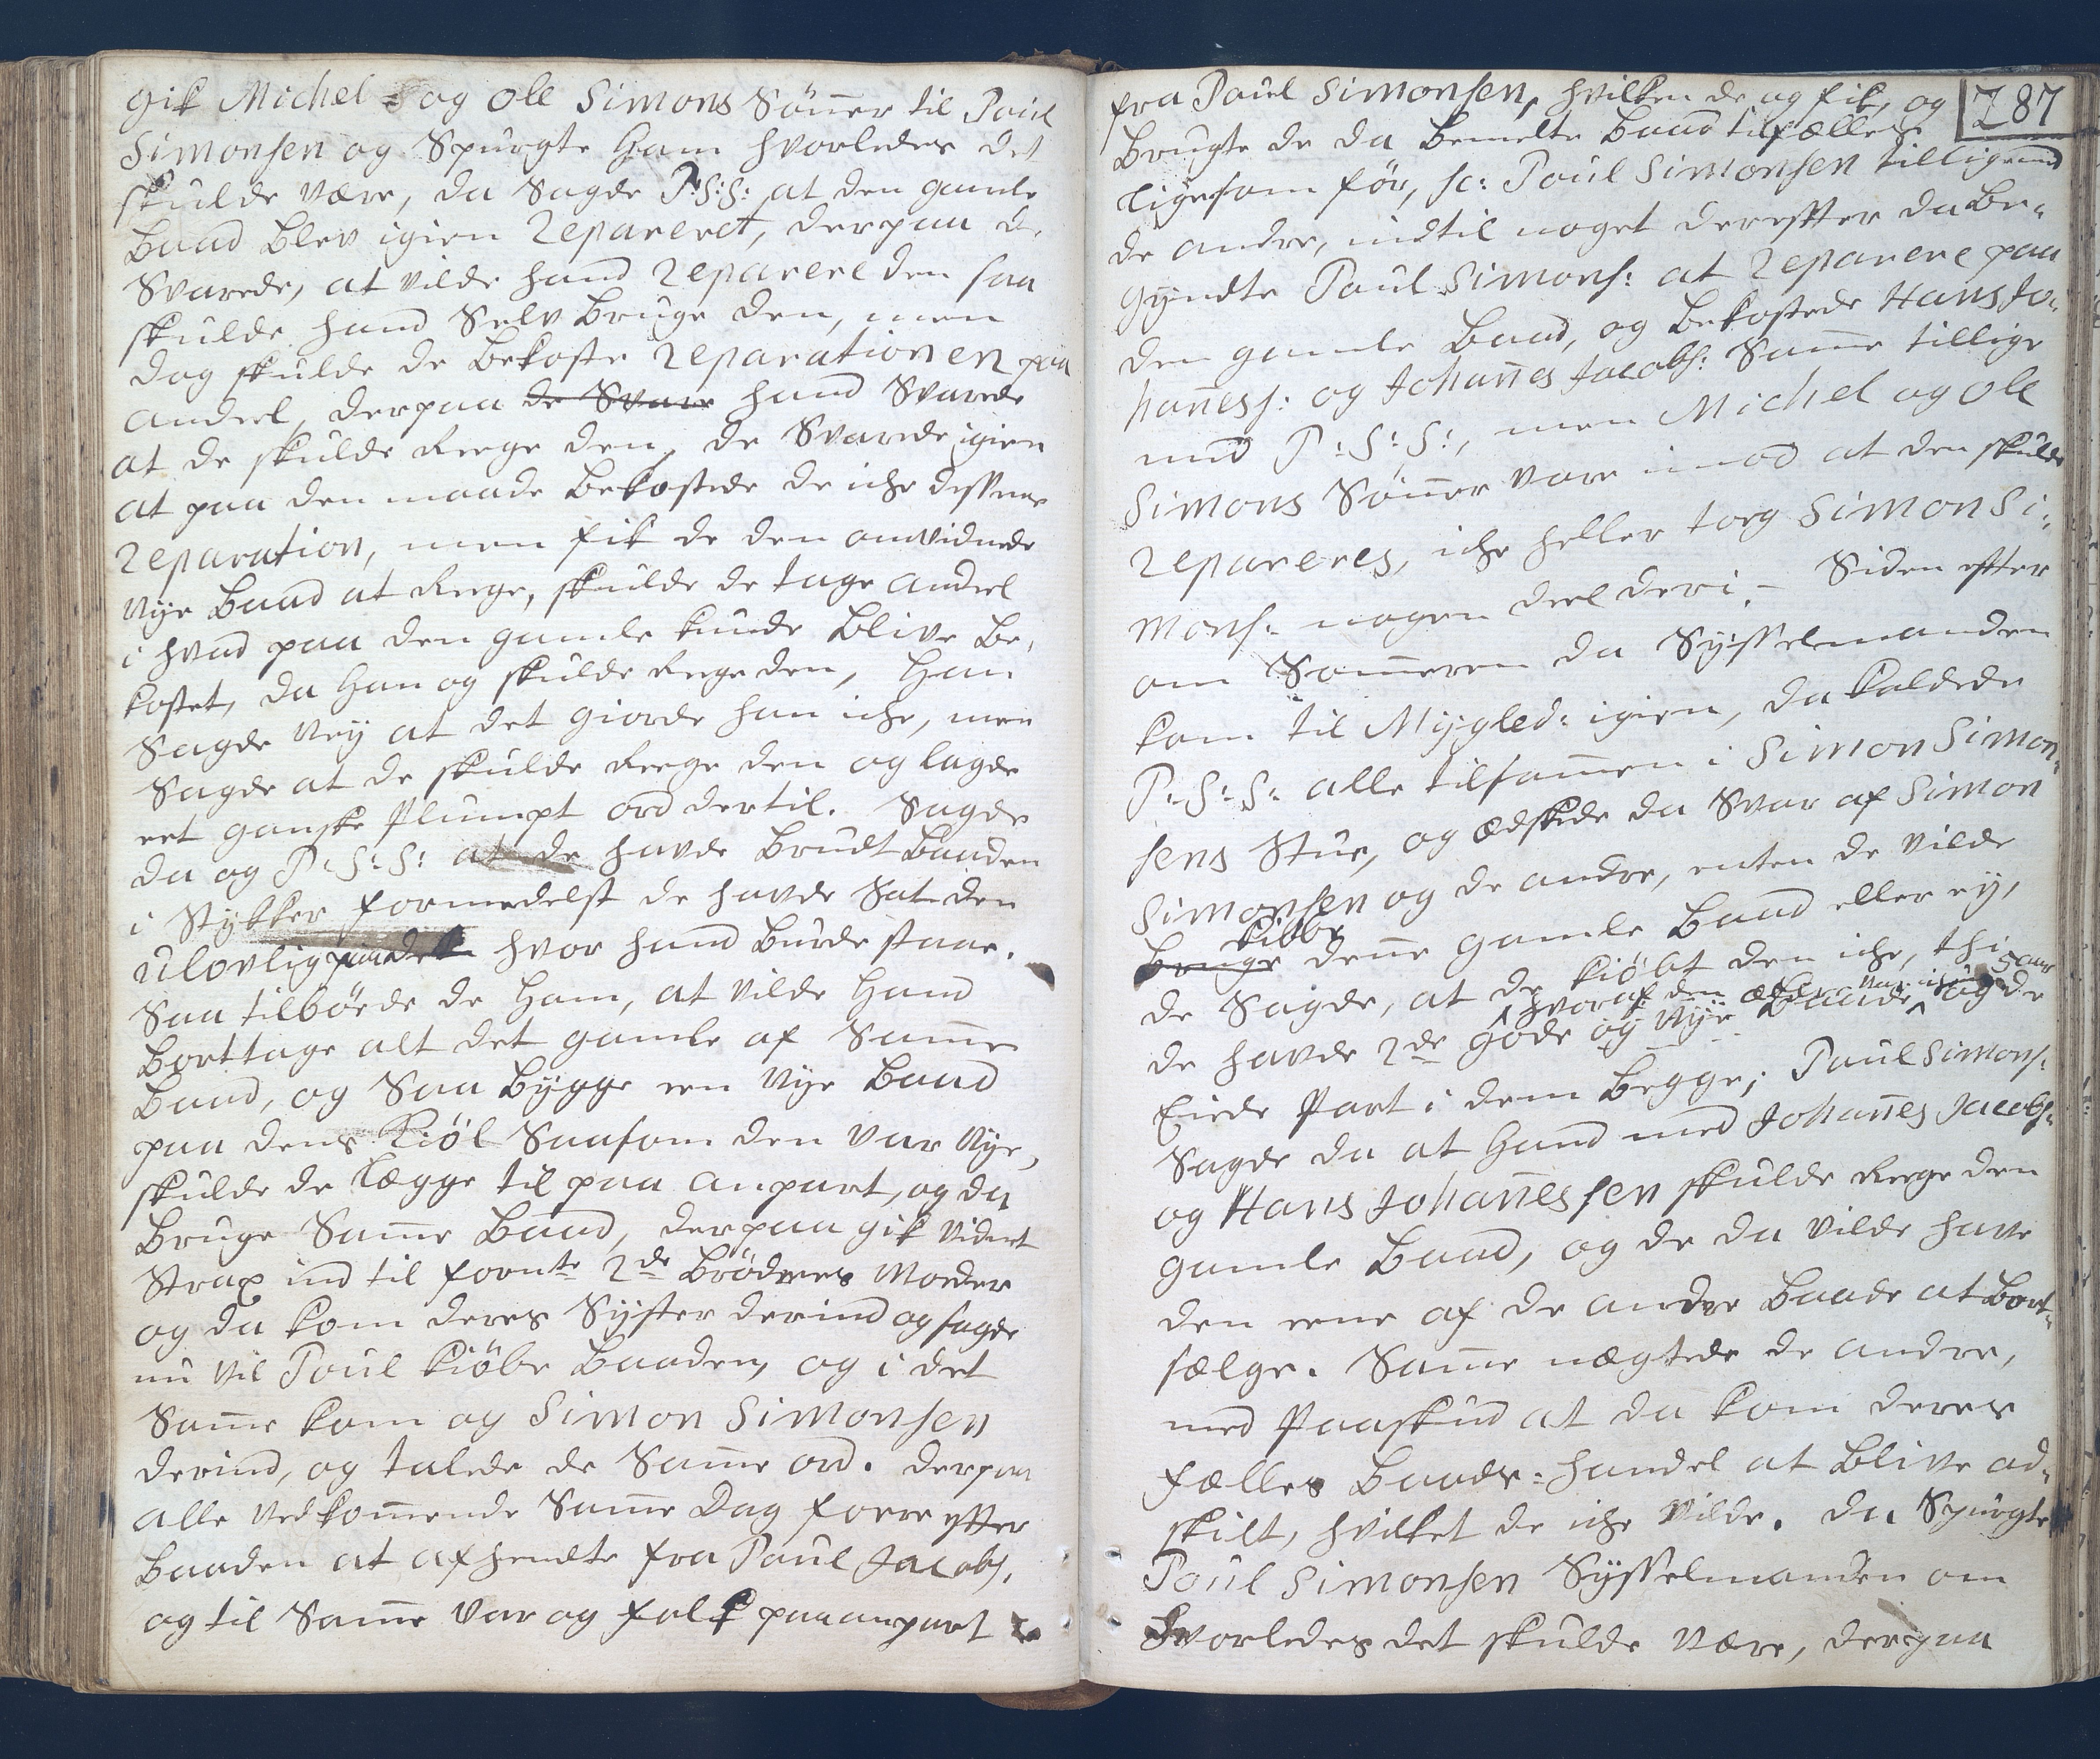 gik Michel og Ole Simons Sönner til Poul
Simonsen og Spurgte ham hvorledes det
skulde være, da Sagde P:S:S: at den gamle
baad blev igien Repareret, derpaa de
Svarede, at vilde hand Reparere den saa
skulde hand Selv bruge den, men
dog skulde de bekoste Reparationen paa
andeel, derpaa de Svare hand Svarede
at de skulde Rege den, de Svarede igien
at paa den maade bekostede de iche dessens
Reparation, men fik de den omvidnede
Nye baad at Rege, skulde de tage andeel
i hvad paa den gamle kunde blive be-
kostet, da han og skulde Rege den, han
Sagde Ney at det giorde han iche, men
Sagde at de skulde Rege den og lagde
eet ganske Plumpt ord dertil. Sagde
da og P:S:S: at de havde brudt baaden
i Stykker formedelst de havde Sat den
Ulovlig hvor hand burde staae.
Saa tilböde de ham, at vilde hand
borttage alt det gamle af Sam̅e
baad, og Saa bygge een Nye baad
paa dens Kiöl Saasom den var Nye,
skulde de lægge til paa anpart, og da
bruge Sam̅e baad, derpaa gik vidnet
Strax ind til fornte 2de brödres Moder
og da kom deres Syster derind og sagde
nu vil Poul kiöbe baaden, og i det
Sam̅e kom og Simon Simonsen
derind, og talede de Sam̅e ord. derpaa
alle vedkom̅ende Sam̅e Dag foere efter
baaden at afhendte fra Poul Jacobs.
og til Sam̅e var og folk paa anpart
287
fra Poul Simonsen, hvilken de og fik, og
brugte de da bemelte baad tilfælles
ligesom för, sc: Poul Simonsen tilligemed
de andre, indtil noget derefter da be-
gyndte Poul Simons: at Reparere paa
den gamle baad, og bekostede Hans Jo-
han̅ess: og Johan̅es Jacobs: Sam̅e tillige
med P:S:S:, men Michel og Ole
Simons Sön̅er vare imod at den skulde
Repareres, iche heller tog Simon Si-
mons: nogen deel deri. - Siden efter
om Som̅eren da Sysselmanden
kom til Mygled: igien, da kaldede
P:S:S: alle tilsam̅en i Simon Simon-
sens Stue, og ædskede da Svar af Simon
Simonsen og de andre, enten de vilde
kiöbe
bruge den̅e gamle baad eller ey,
de Sagde, at de kiöbt den iche, thi
hvoraf den var
de havde 2de gode og Nye baade og de
Eiede Part i dem begge; Poul Simons:
Sagde da at hand med Johan̅es Jacobs:
og Hans Johan̅essen skulde Rege den
gamle baad, og de da vilde have
den eene af de andre baade at bort-
sælge. Sam̅e nægtede de andre,
med Paaskud at da kom deres
fælles baade-handel at blive ad-
skilt, hvilket de iche vilde. da Spurgte
Poul Simonsen Sysselmanden om
hvorledes det skulde være, derpaa